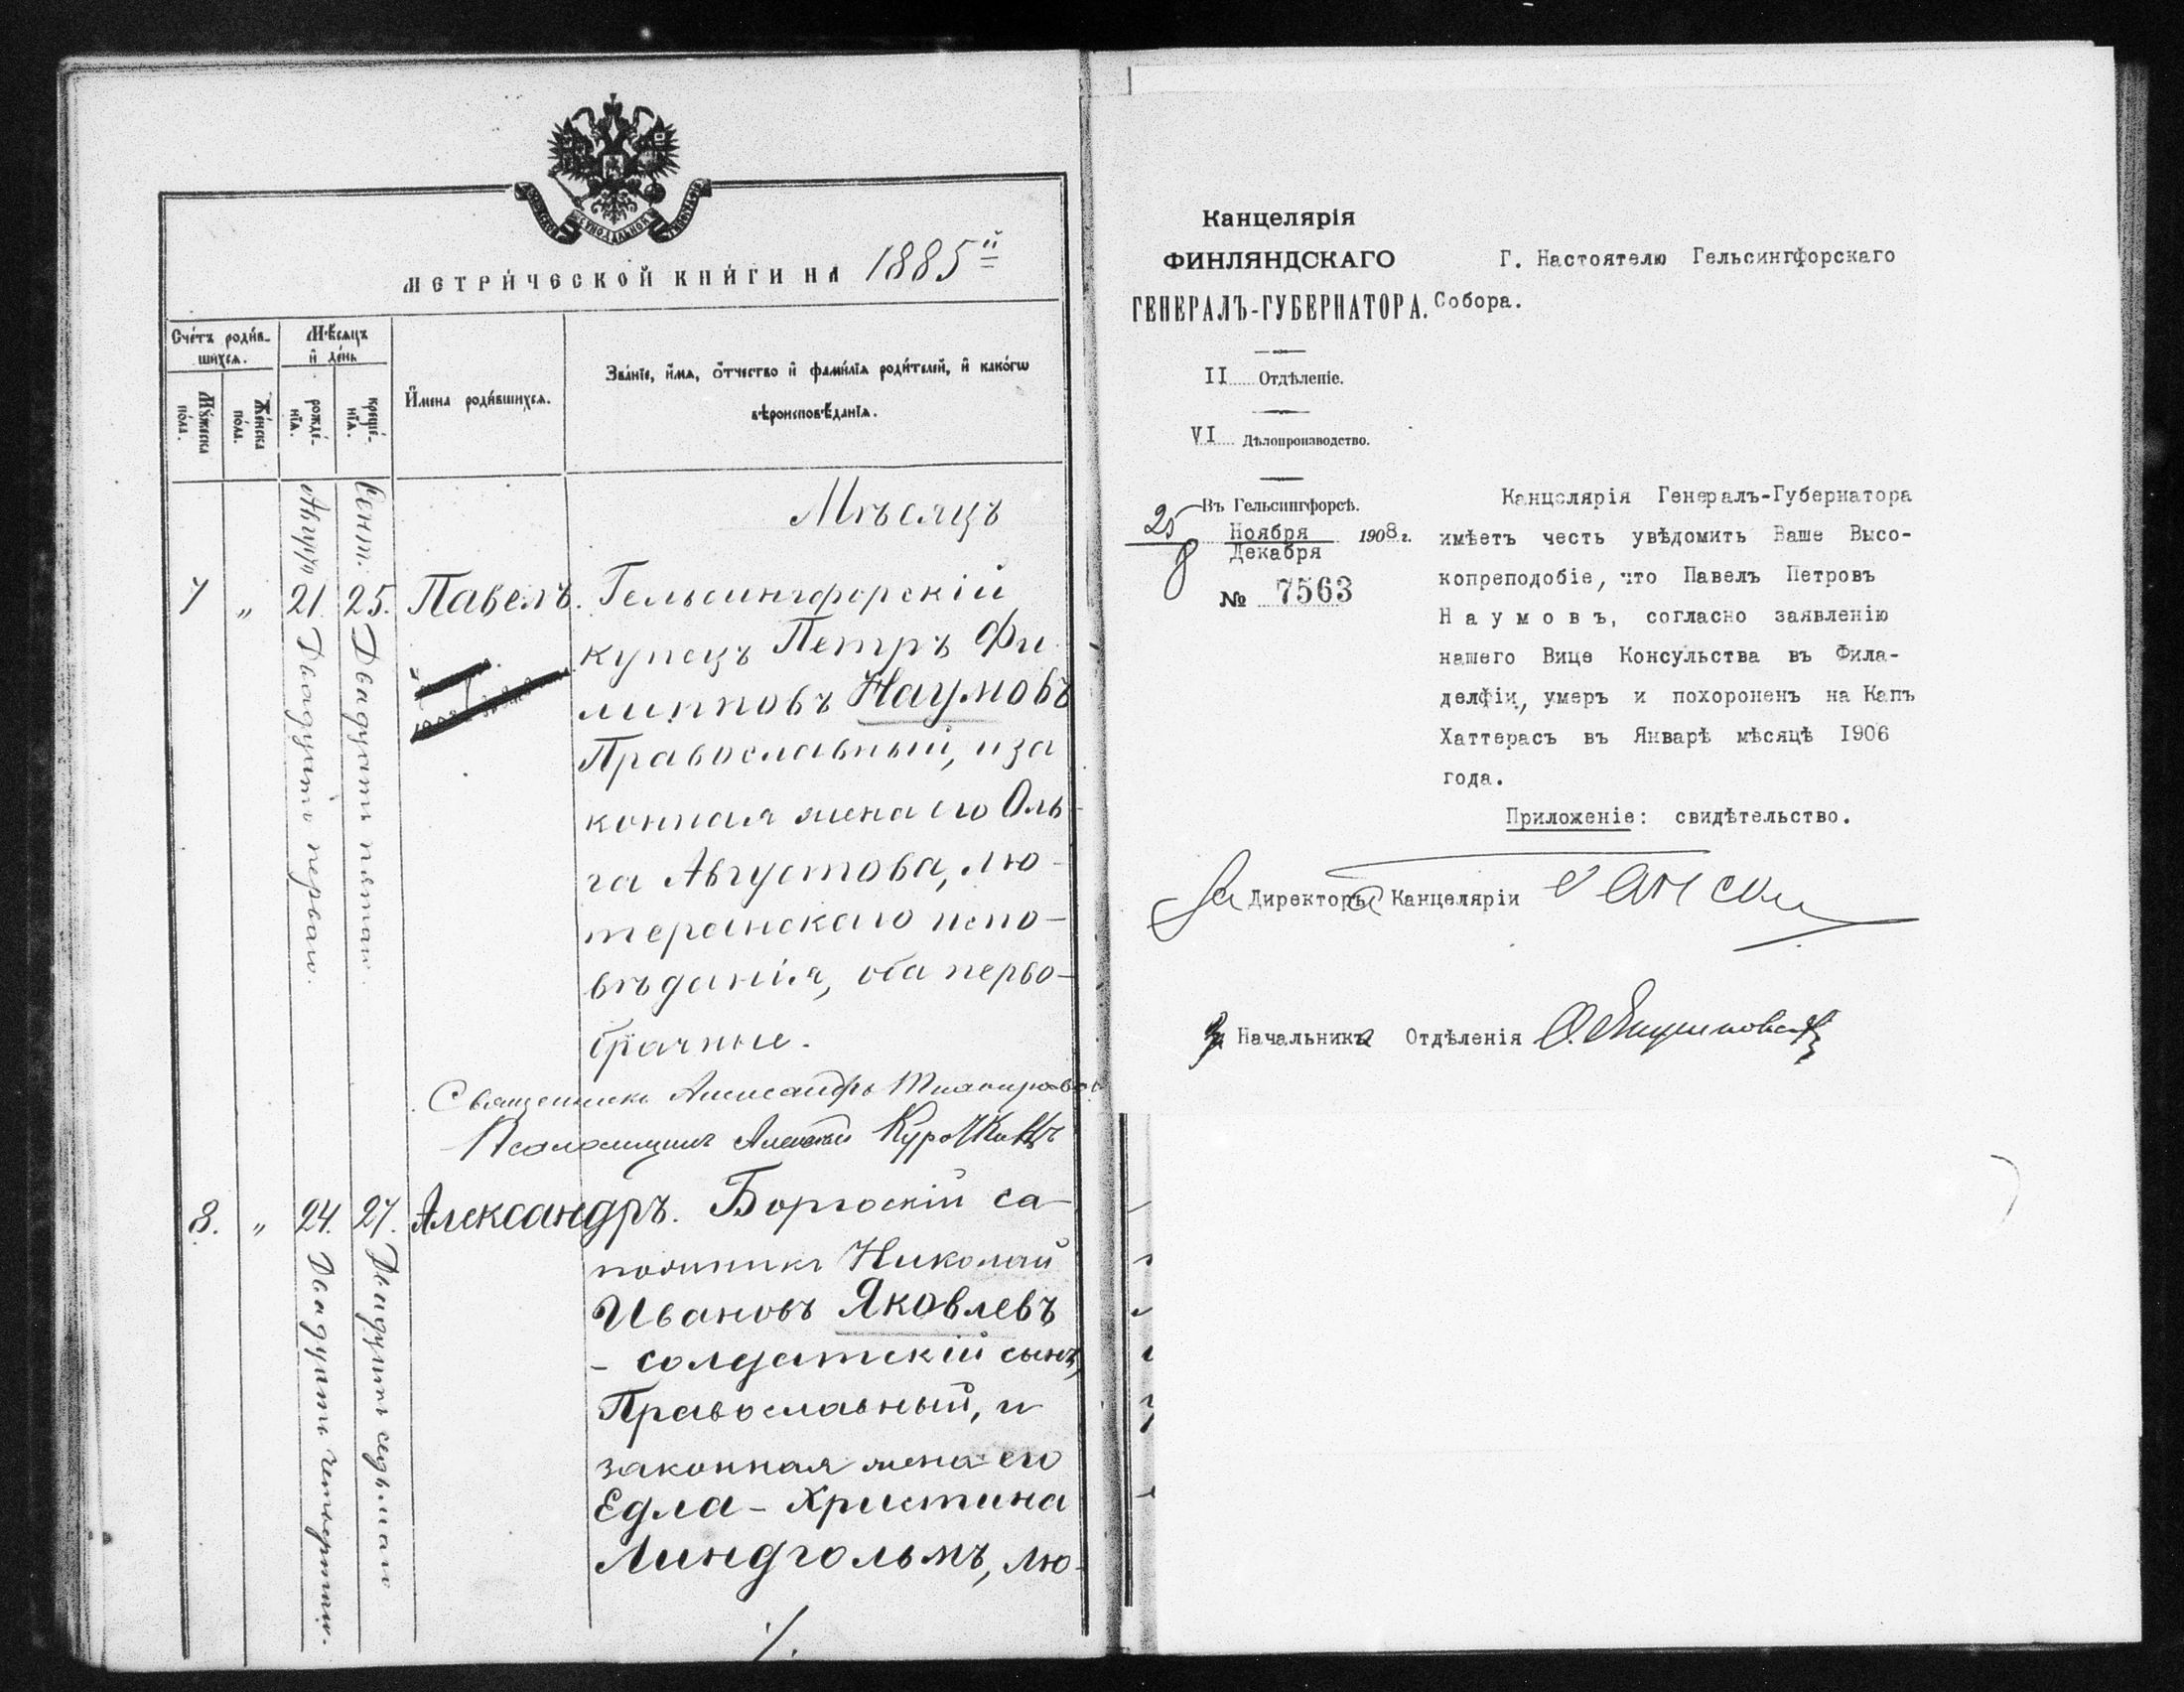 МЕТРИ́ЧЕСКОЙ КНИ́ГИ НА 1885й
Сче́тъ роди́в-
шихся.
Му́жеска
по́ла.
Же́нска
по́ла.
Мѣ́сяцъ
и де́нь
рожде́-
нїѧ.
креще́-
нїѧ.
И҆мена роди́вшихся.
Зва́нїе, и҆́мѧ, ѻ҆́тчество и҆ фами́лїѧ роди́телей, и҆ како́гѡ
вѣроисповѣ́данїѧ.
Августъ
Сент.
Мѣсяцъ
7 " 21. 25. Павелъ. Гельсингфорскій
Двадцать перваго.
Двадцать пятаго
купецъ Петръ Фи-
липповъ Наумовъ
Православный, и за
конная жена его Оль-
га Августова, лю-
теранскаго испо-
вѣданія, оба перво-
брачные.
Священникъ Александръ
Псаломщикъ Алексѣй Курочкинъ
8. " 24. 27. Александръ. Боргоскій са-
Двадцать четвертаго.
Двадцать седьмаго
пожникъ Николай
Ивановъ Яковлевъ
- солдатскій сынъ,
Православный, и
законная жена его
Едла-Христина
Линдгольмъ, лю-
./.
Канцелярія
ФИНЛЯНДСКАГО
ГЕНЕРАЛЪ-ГУБЕРНАТОРА.
II Отдѣленіе.
VI Дѣлопроизводство.
Въ Гельсингфорсѣ.
25 Ноября 1908 г.
8 Декабря
№ 7563
Г. Настоятелю Гельсингфорскаго
Собора.
Канцелярія Генералъ-Губернатора
имѣетъ честь увѣдомить Ваше Высо-
копреподобіе, что Павелъ Петровъ
Наумовъ, согласно заявленію
нашего Вице Консульства въ Фила-
делфіи, умеръ и похороненъ на Капъ
Хаттерасъ въ Январѣ мѣсяцѣ 1906
года.
Приложеніе: свидѣтельство.
За Директора Канцеляріи
За Начальника Отдѣленія